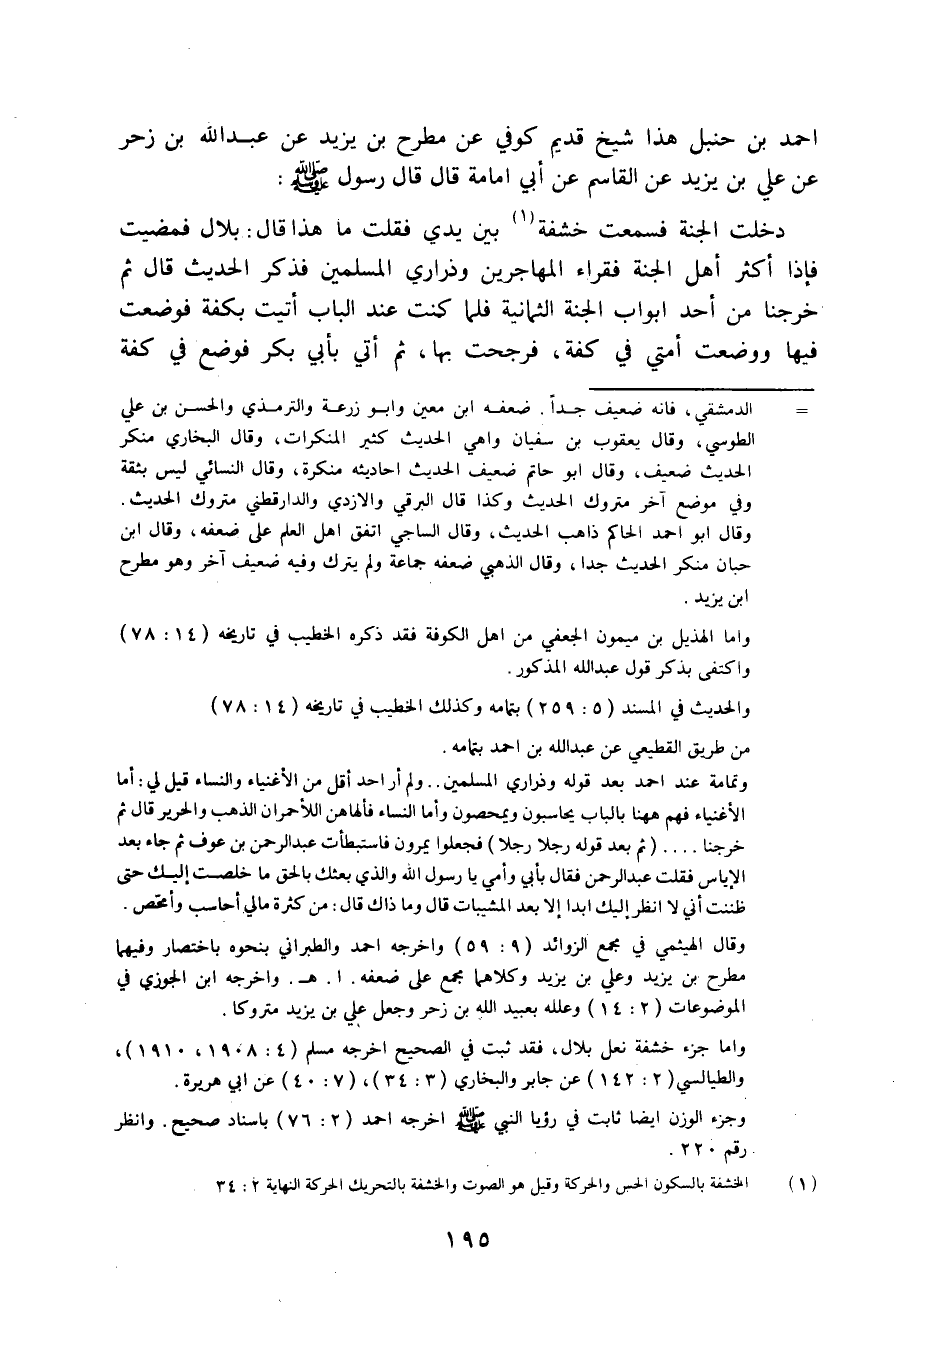 احمد بن حنبل هذا شيخ قديم كوفي عن مطرح بن يزيد عن عبدالله بن زحر
عن علي بن يزيد عن القاسم عن أبي امامة قال قال رسول ﷺ :
دخلت الجنة فسمعت خشفة(١) بين يدي فقلت ما هذا قال : بلال فمضيت
فإذا أكثر أهل الجنة فقراء المهاجرين وذراري المسلمين فذكر الحديث قال ثم
خرجنا من أحد ابواب الجنة الثمانية فلما كنت عند الباب أتيت بكفة فوضعت
فيها ووضعت أمتي في كفة ، فرجحت بها ، ثم أتي بأبي بكر فوضع في كفة
= الدمشقي ، فانه ضعيف جداً . ضعفه ابن معين وابو زرعة والترمذي والحسن بن علي
الطوسي ، وقال يعقوب بن سفيان واهي الحديث كثير المنكرات ، وقال البخاري منكر
الحديث ضعيف ، وقال ابو حاتم ضعيف الحديث احاديثه منكرة ، وقال النسائي ليس بثقة
وفي موضع آخر متروك الحديث وكذا قال البرقي والازدي والدارقطني متروك الحديث .
وقال ابو احمد الحاكم ذاهب الحديث ، وقال الساجي اتفق اهل العلم على ضعفه ، وقال ابن
حبان منكر الحديث جدا ، وقال الذهبي ضعفه جماعة ولم يترك وفيه ضعيف آخر وهو مطرح
ابن يزيد .
واما الهذيل بن ميمون الجعفي من اهل الكوفة فقد ذكره الخطيب في تاريخه ( ١٤ : ٧٨ )
واكتفى بذكر قول عبدالله المذكور .
والحديث في المسند ( ٥ : ٢٥٩ ) بتمامه وكذلك الخطيب في تاريخه ( ١٤ : ٧٨ )
من طريق القطيعي عن عبدالله بن احمد بتمامه .
وتمامة عند احمد بعد قوله وذراري المسلمين . . ولم أر احد أقل من الأغنياء والنساء قيل لي : أما
الأغنياء فهم ههنا بالباب يحاسبون ويمحصون وأما النساء فألهاهن اللأحمران الذهب والحرير قال ثم
خرجنا . . . . ( ثم بعد قوله رجلا رجلا ) فجعلوا يمرون فاستبطأت عبدالرحمن بن عوف ثم جاء بعد
الإياس فقلت عبدالرحمن فقال بأبي وأمي يا رسول الله والذي بعثك بالحق ما خلصت إليك حتى
ظننت أني لا انظر إليك ابدا إلا بعد المشيبات قال وما ذاك قال : من كثرة مالي أحاسب وأمحص .
وقال الهيثمي في مجمع الزوائد ( ٩ : ٥٩ ) واخرجه احمد والطبراني بنحوه باختصار وفيهما
مطرح بن يزيد وعلي بن يزيد وكلاهما مجمع على ضعفه . ا . هـ . واخرجه ابن الجوزي في
الموضوعات ( ٢ : ١٤ ) وعلله بعبيد الله بن زحر وجعل علي بن يزيد متروكا .
واما جزء خشفة نعل بلال ، فقد ثبت في الصحيح اخرجه مسلم ( ٤ : ١٩٠٨ ، ١٩١٠ ) ،
والطيالسي ( ٢ : ١٤٢ ) عن جابر والبخاري ( ٣ : ٣٤ ) ، ( ٧ : ٤٠ ) عن ابي هريرة .
وجزء الوزن ايضا ثابت في رؤيا النبي ﷺ اخرجه احمد ( ٢ : ٧٦ ) باسناد صحيح . وانظر
رقم ٢٢٠ .
( ١ ) الخشفة بالسكون الحس والحركة وقيل هو الصوت والخشفة بالتحريك الحركة النهاية ٢ : ٣٤
١٩٥